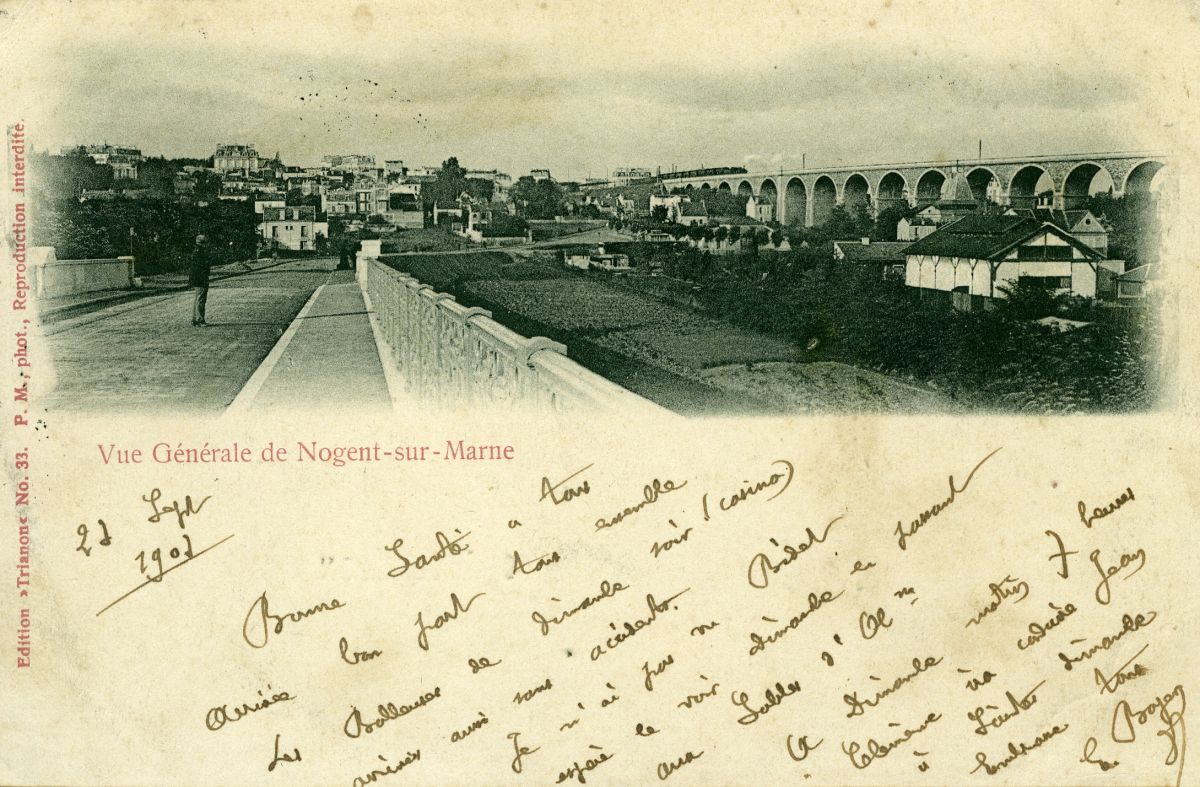 Edition »Trianon« No. 33. P. M., phot., Reproduction interdite.
Vue Générale de Nogent-sur-Marne
Sept
Bonne Santé a tous
Arrivée bon port tous ensemble
Les de dimanche soir (casino)
aussi sans accidents. Bidet
Je n'ai pas vu dimanche en passant
espère le voir Sables d'Ol^m
aux
A Dimanche matin 7 heures
Clémence ira conduire Jean
à dimanche
Embrasse tous